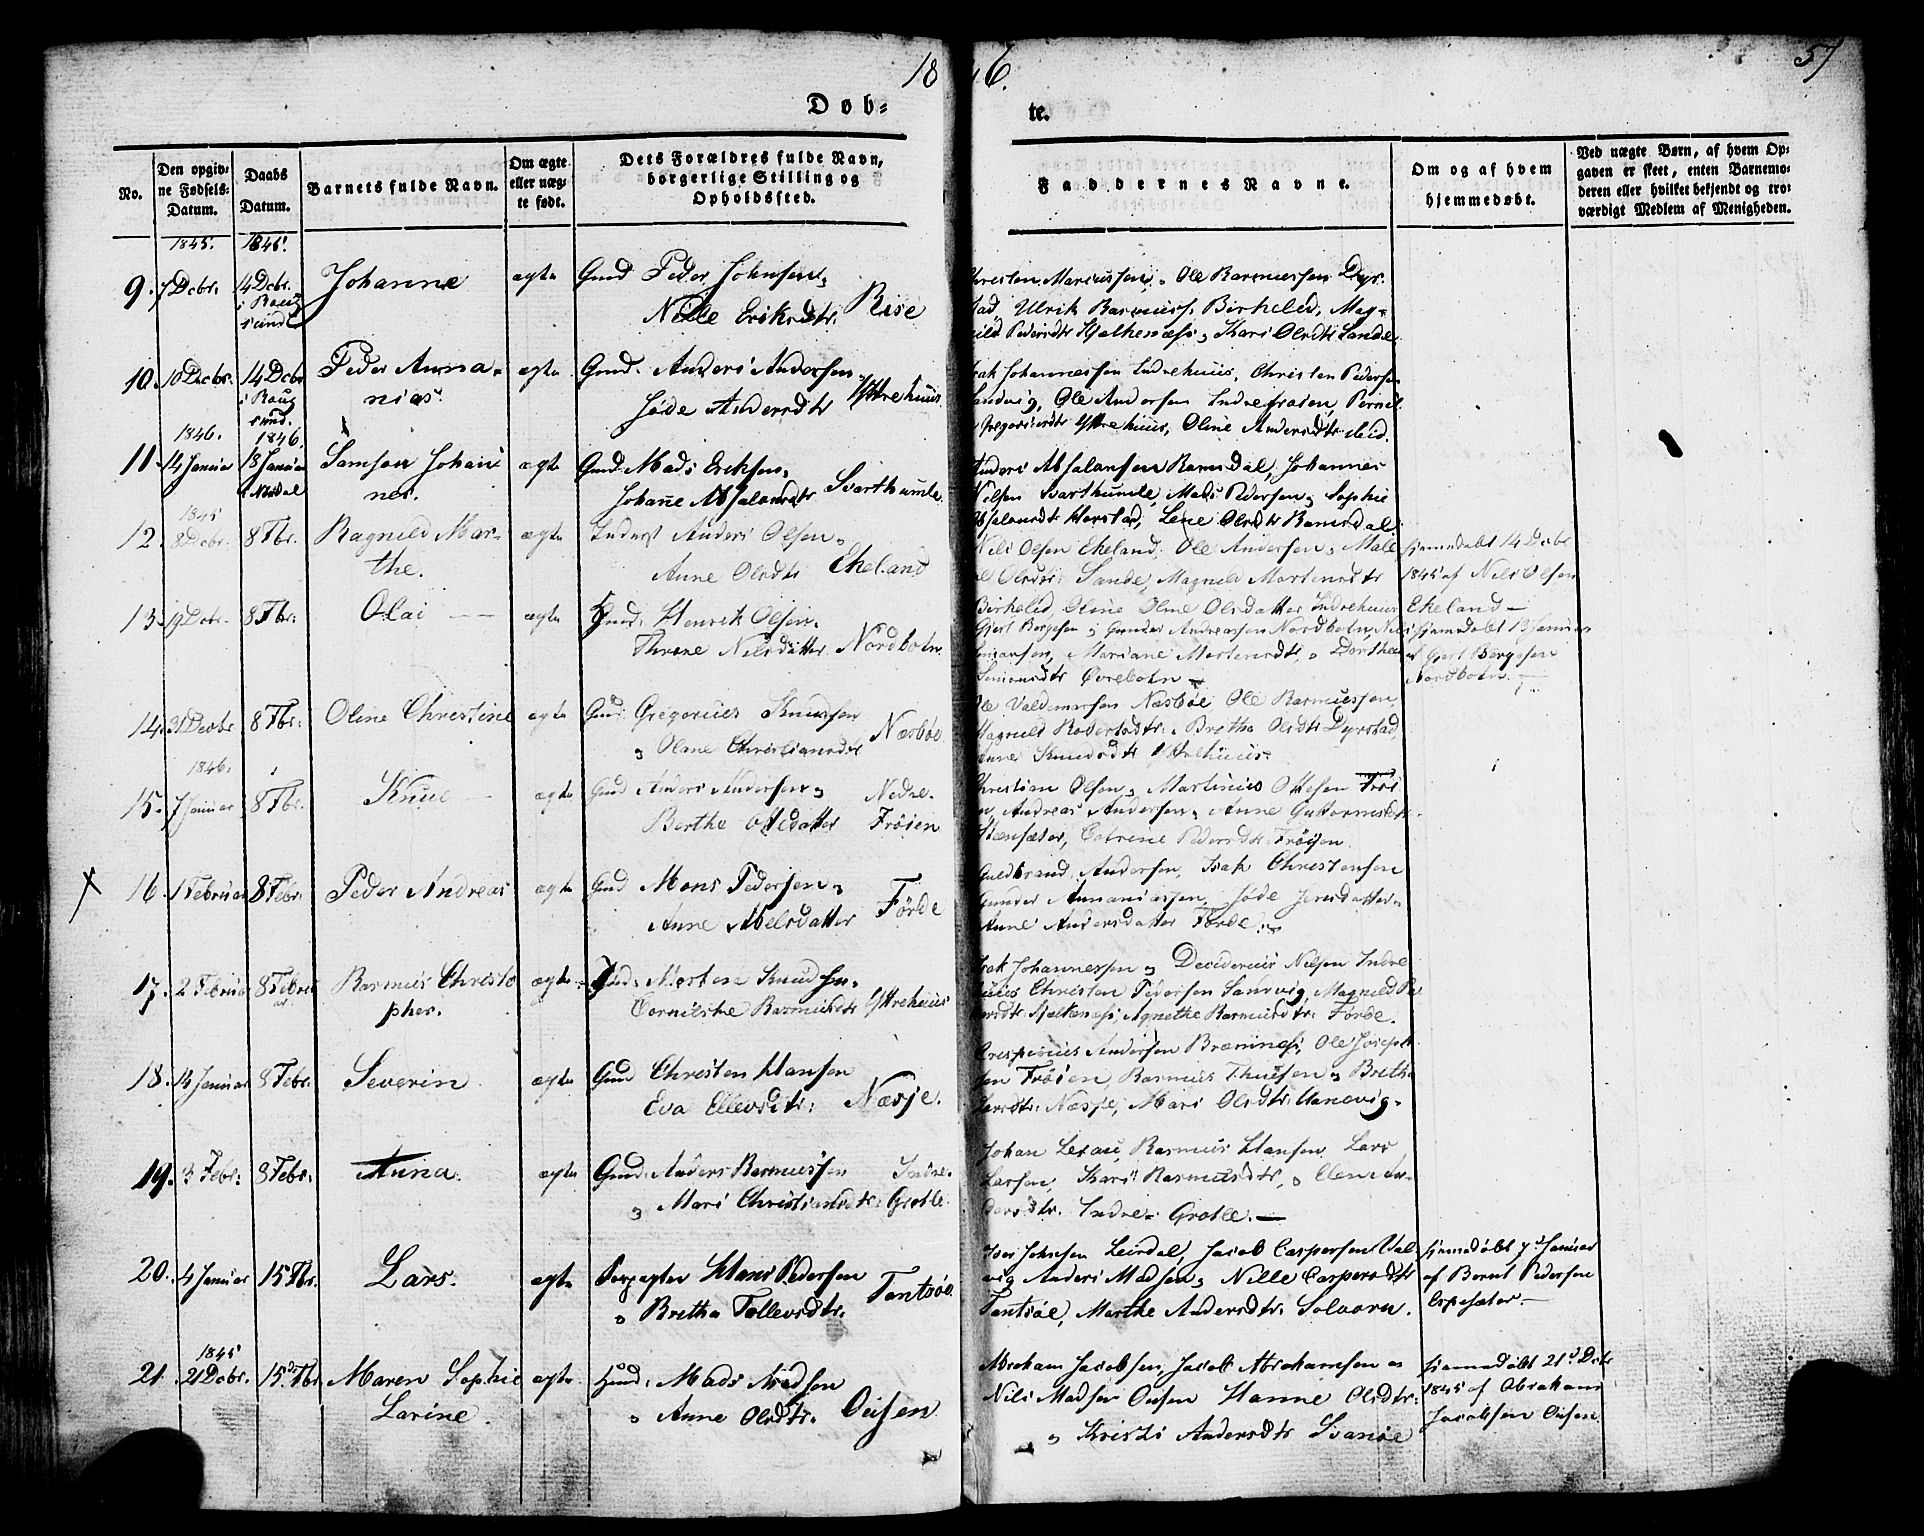 18 46. 57
Døb= te.
No.
Den opgiv=
ne Fødsels=
Datum.
Daabs
Datum.
Barnets fulde Navn.
Om ægte
eller uæg=
te født.
Dets Forældres fulde Navn,
borgerlige Stilling og
Opholdssted.
Faddernes Navne.
Om og af hvem
hjemmedøbt.
Ved uægte Børn, af hvem Op=
gaven er skeet, enten Barnemo=
deren eller hvilket bekjendt og tro=
værdigt Medlem af Menigheden.
1845. 1845.
9. 7 Dcbr. 14 Dcbr. Johanne ægte Gmd Peder Johnsen Rise
Nille Eriksdtr.
Christen Mariussen, Ole Rasmussen Dyr
stad, Ulrik Rasmuss. Birkeled, Mag=
nild Pedersdtr Hjelkenæss, Kari Olsdtr Sande
10. 10 Decbr. 14 Dcbr Peder Anna= ægte Gmd. Anders Andersen
nias. Jøde Andersdtr Yttrehuus
Isak Johannessen Indrehuus, Christen Pedersen
Sandvig, Ole Andersen Indrefrøien, Pernil
Gregoriusdtr Yttrehuus, Oline Andersdtr
1846. 1846
11. 14 Januar 18 Januar Samson Johan ægte Gmd. Mads Eriksen
nes. Johane Absalonsdtr Svarthumle
Anders Absalonsen Ramsdal, Johannes
Nilsen Svarthumle, Mads Pedersen, Sophie
Absalonsdtr Hovstad, Lene Olsdtr Ramsdal
1845
12. 8 Dcbr. 8 Fbr. Ragnild Mar= ægte Inderst Anders Olsen
the. Anne Olsdtr Ekeland
Nils Olsen Ekeland, Ole Andersen, Male
Olsdtr Sande, Magnild Mortensdtr
Birkeled, Oline Olsdatter Indrehuus
hjemmedøbt 14 Dcbr
1845 af Nils Olsen
Ekeland
13. 19 Dcbr. 8 Fbr. Olai ægte Gmd. Henrik Olsen
Throne Nilsdatter Nordbotn
Gjert Børgesen, Gunder Andreassen Nordbotn, Nils
Mariane Mortensdtr, Dorthea
Simonsdtr Øvrebotn
hjemmedøbt 13 Januar
af Gjert Børgesen
Nordbotn
14. 31 Decbr 8 Fbr. Oline Christine ægte Gmd. Gregorius Knudsen
Olane Christiansdtr Næsbøe
Ole Valdemarsen Næsbøe Ole Rasmussen
Magnild Robertsdtr. Bretha Olsdtr Dyrstad,
Anne Knudsdtr Yttrehuus
1846.
15. 7 Januar 8 Fbr. Knud ægte Gmd Anders Andersen Nedre
Berthe Ottedatter Frøien
Christian Olsen, Martinus Ottesen Frøi
en, Andreas Andersen, Anne Guttormsdtr
Stensæter, Catrine Pedersdtr Frøien
16. 1 Februar 8 Febr. Peder Andreas ægte Gmd Mons Pedersen
Anne Abelsdatter Førde
Guldbrand Andersen, Isak Christensen
Gunder Annaniassen, Jøde Jensdatter
Anne Andersdatter Førde.
17. 2 Februar 8 Februar Rasmus Christo ægte Gmd. Morten Knudsen
pher. Cornilske Rasmusdtr Yttrehuus
Isak Johannessen, Desiderius Nilsen Indre
huus Christen Pedersen Sandvig, Magnild Pe
dersdtr. Hjelkenæss, Agnethe Rasmusdtr. Førde.
18. 14 Januar 8 Febr. Severin ægte Gmd Christen Hansen
Eva Ellevsdtr. Næsje.
Crespinus Andersen Bræmnes, Ole Joseph
sen Frøien, Rasmus Thuesen, Bretha
Larsdtr. Næsje, Mari Olsdtr. Hanevig.
19. 3 Febr. 8 Febr. Anna. ægte Gmd. Anders Rasmussen Indre.
Mari Christiansdtr. Grotle.
Johan Rasmus Hansen, Lars
Larsen, Kari Rasmusdtr, Elen An
dersdtr. Indre. Grotle.
20. 4 Januar 15 Fbr. Lars. ægte Forpagter Hans Pedersen
Bretha Tollevsdtr. Tantsøe
Iver Johnsen Leirdal, Jacob Caspersen Val
vig Anders Madsen, Nille Caspersdtr
Tantsøe, Marthe Andersdtr. Solvorn.
hjemmedøbt 7de Januar
af Bernt Pedersen
Espesæter.
1845
21. 21 Dcbr. 15de Fbr. Maren Sophie ægte Huusmd. Mads Madsen
Larine. Anne Olsdtr. Ousen
Abraham Jacobsen, Jacob Abrahamsen
Nils Madsen Ousen Hanne Olsdtr.
Kristi Andersdtr Svanøe
hjemmedøbt 21de Dcbr
1845 af Abraham
Jacobsen Ousen.